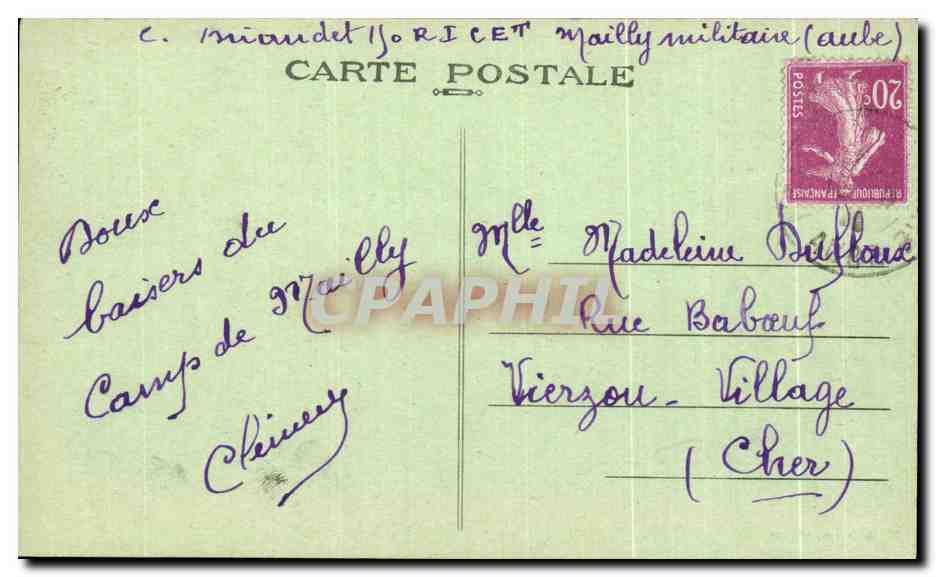 C. Briandet 13o RICET Mailly militaire (aube)
CARTE POSTALE
20c
POSTES
REPUBLIQUE FRANÇAISE
Doux
baisers du
Camp de Mailly
Mlle Madeleine Dufloux
Rue Babœuf
Vierzon - Village
(Cher)
CPAPHIL